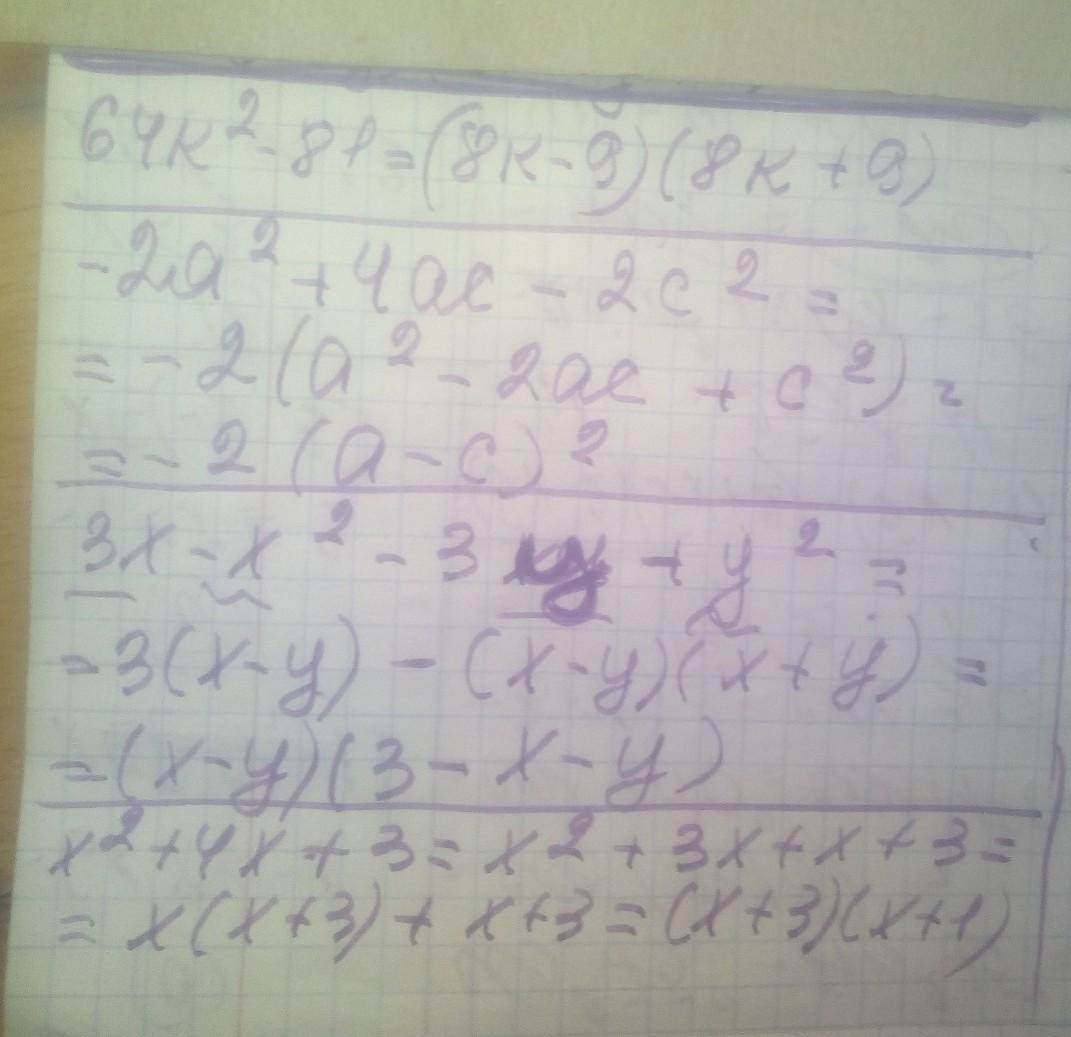 64к² - 81 = (8к - 9)(8к + 9)
-2a² + 4ac - 2c² =
= -2(a² - 2ac + c²) =
= -2(a - c)²
3x - x² - 3y + y² =
= 3(x - y) - (x - y)(x + y) =
= (x - y)(3 - x - y)
x² + 4x + 3 = x² + 3x + x + 3 =
= x(x + 3) + x + 3 = (x + 3)(x + 1)